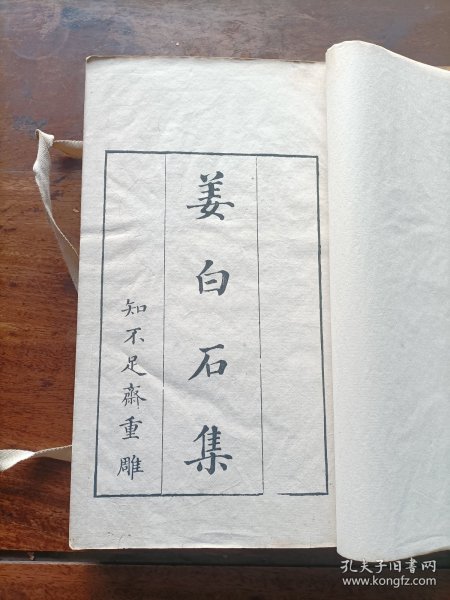 姜白石集
知不足齋重雕
孔夫子旧书网
www.kongfz.com